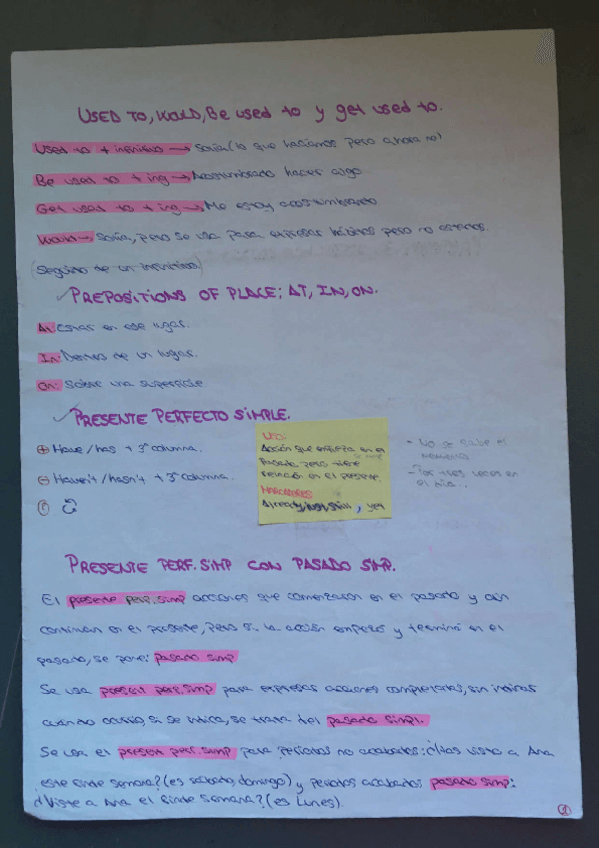 USED TO, WOULD, Be used to y get used to.
Used to + infinitivo → Solía (lo que hacíamos pero ahora no)
Be used to + ing → Acostumbrado hacer algo
Get used to + ing → Me estoy acostumbrando
Would → Solía, pero se usa para expresar hábitos pero no estados.
(Seguido de un infinitivo)
✓ PREPOSITIONS OF PLACE; AT, IN, ON.
At: Estas en ese lugar.
In: Dentro de un lugar.
On: Sobre una superficie
✓ PRESENTE PERFECTO SIMPLE.
+ Have/has + 3ª columna.
- Haven't/hasn't + 3ª columna.
?
USO:
Acción que empieza en el
pasado pero tiene
relación en el presente.
MARCADORES
Already, just, still, yet
- No se sabe el
momento
- Por tres veces en
el día...
PRESENTE PERF. SIMP CON PASADO SIMP.
El presente perf. simp acciones que comenzaron en el pasado y aún
continúan en el presente, pero si la acción empezó y terminó en el
pasado, se pone: pasado simp
Se usa present perf. simp para expresar acciones completadas, sin indicar
cuando ocurrió, si se indica, se trata del pasado simpl.
Se usa el present perf. simp para periodos no acabados: ¿Has visto a Ana
este finde semana? (es sábado, domingo) y periodos acabados pasado simp:
¿Viste a Ana el finde semana? (es Lunes)